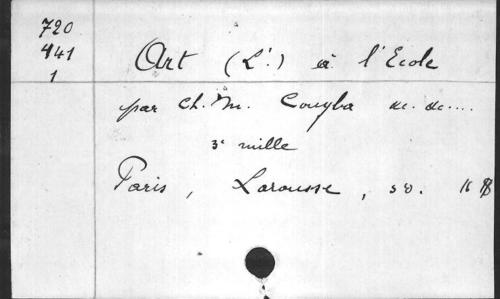 720
441
1
Art (L'.) à l'Ecole
par Ch. M. Couyba &c. &c....
3e mille
Paris, Larousse, sd. 16